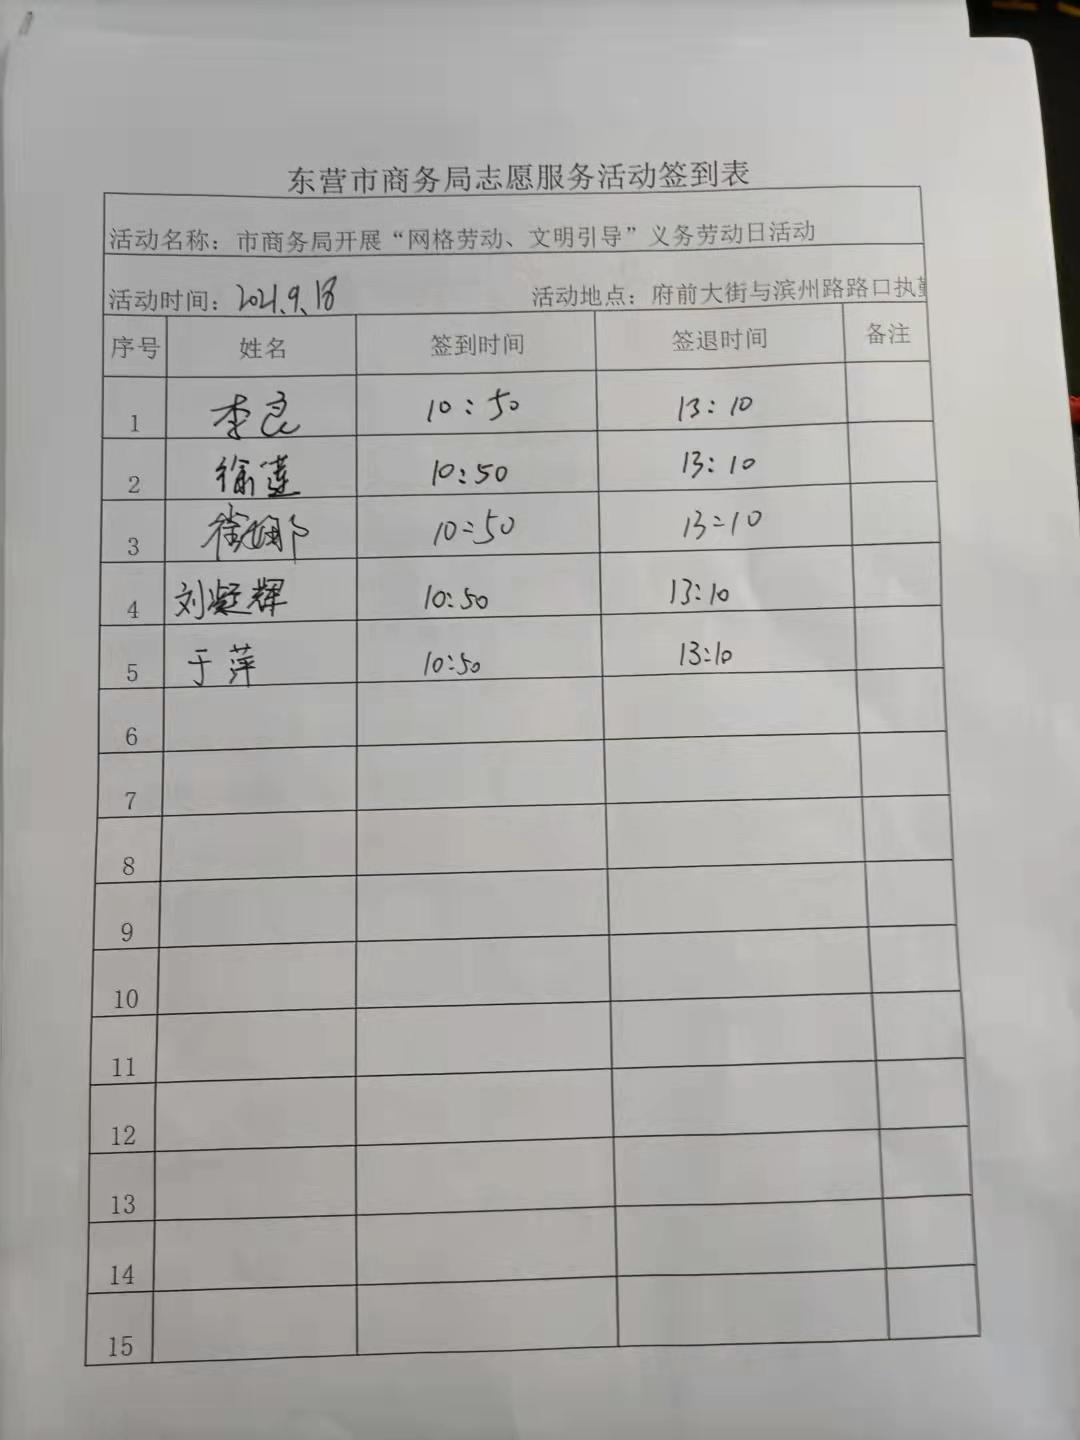 东营市商务局志愿服务活动签到表
活动名称：市商务局开展“网格劳动、文明引导”义务劳动日活动
活动时间：2021.9.18 活动地点：府前大街与滨州路路口执勤
序号 姓名 签到时间 签退时间 备注
1 李良 10:50 13:10
2 徐莲 10:50 13:10
3 徐娜 10:50 13:10
4 刘凝辉 10:50 13:10
5 于萍 10:50 13:10
6
7
8
9
10
11
12
13
14
15